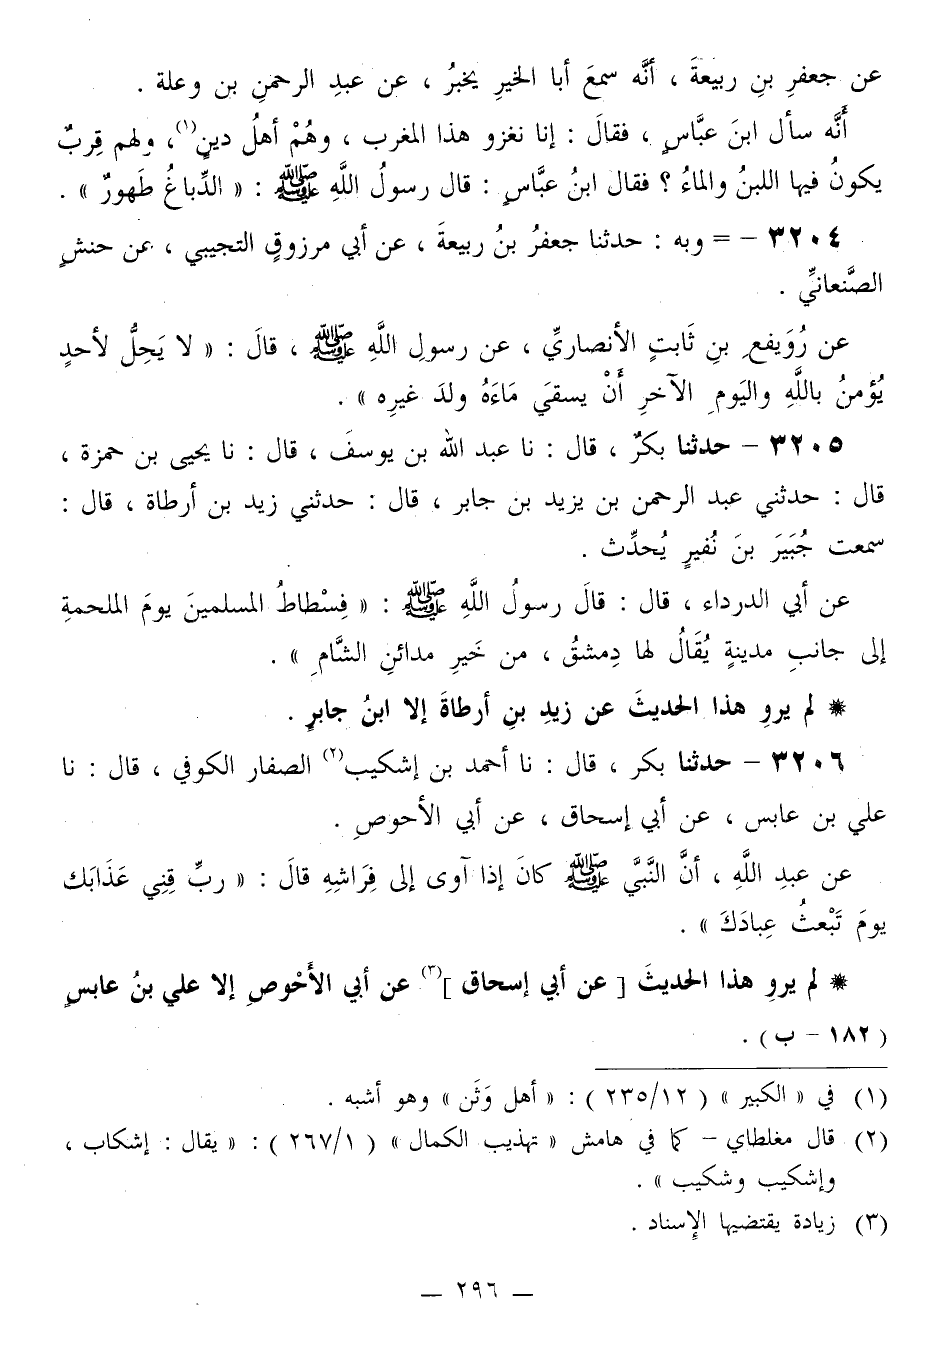 عن جعفرِ بنِ ربيعةَ ، أنَّه سمعَ أبا الخيرِ يخبرُ ، عن عبدِ الرحمنِ بن وعلة .
أَنَّه سأل ابنَ عبَّاسٍ ، فقالَ : إنا نغزو هذا المغرب ، وهُمْ أهلُ دينٍ(١)، ولهم قِربٌ
يكونُ فيها اللبنُ والماءُ ؟ فقال ابنُ عبَّاسٍ : قال رسولُ اللَّهِ ﷺ : « الدِّباغُ طَهورٌ » .
٣٢٠٤ – = وبه : حدثنا جعفرُ بنُ ربيعةَ ، عن أبي مرزوقٍ التجيبي ، عن حنشٍ
الصَّنعانيِّ .
عن رُوَيفعِ بنِ ثَابتٍ الأنصاريِّ ، عن رسولِ اللَّهِ ﷺ ، قالَ : « لا يَحِلُّ لأحدٍ
يُؤمنُ باللَّهِ واليَومِ الآخرِ أَنْ يسقيَ مَاءَهُ ولدَ غيرِه » .
٣٢٠٥ – حدثنا بكرٌ ، قال : نا عبد الله بن يوسفَ ، قال : نا يحيى بن حمزة ،
قال : حدثني عبد الرحمن بن يزيد بن جابر ، قال : حدثني زيد بن أرطاة ، قال :
سمعت جُبَيَرَ بنَ نُفيرٍ يُحدِّث .
عن أبي الدرداء ، قال : قالَ رسولُ اللَّهِ ﷺ : « فِسْطاطُ المسلمينَ يومَ الملحمةِ
إلى جانبِ مدينةٍ يُقَالُ لها دِمشقُ ، من خَيرِ مدائنِ الشَّامِ » .
* لم يروِ هذا الحديثَ عن زيدِ بنِ أرطاةَ إلا ابنُ جابرٍ .
٣٢٠٦ – حدثنا بكر ، قال : نا أحمد بن إشكيب(٢) الصفار الكوفي ، قال : نا
علي بن عابس ، عن أبي إسحاق ، عن أبي الأحوصِ .
عن عبدِ اللَّهِ ، أنَّ النَّبيَّ ﷺ كانَ إذا آوى إلى فِرَاشِهِ قالَ : « ربِّ قِنِي عَذَابَك
يومَ تَبْعثُ عِبادَكَ » .
* لم يروِ هذا الحديثَ [ عن أبي إسحاق ](٣) عن أبي الأَحْوصِ إلا علي بنُ عابسٍ
( ١٨٢ – ب ) .
(١) في « الكبير » ( ٢٣٥/١٢ ) : « أهل وَثَن » وهو أشبه .
(٢) قال مغلطاي – كما في هامش « تهذيب الكمال » ( ٢٦٧/١ ) : « يقال : إشكاب ،
وإشكيب وشكيب » .
(٣) زيادة يقتضيها الإسناد .
— ٢٩٦ —